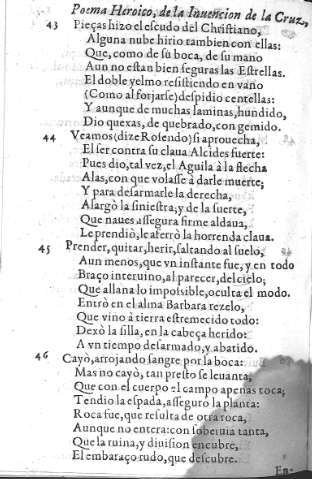 Poema Heroico, de la Inuencion de la Cruz,
43 Pieças hizo el escudo del Christiano,
Alguna nube hirio tambien con ellas:
Que, como de su boca, de su mano
Aun no estan bien seguras las Estrellas.
El doble yelmo resistiendo en vano
(Como al forjarse) despidio centellas:
Y aunque de muchas laminas, hundido,
Dio quexas, de quebrado, con gemido.
44 Veamos (dize Rosendo) si aprouecha,
El ser contra su claua Alcides fuerte:
Pues dio, tal vez, el Aguila à la flecha
Alas, con que volasse à darle muerte;
Y para desarmarle la derecha,
Alargò la siniestra; y de la suerte,
Que naues assegura firme aldaua,
Le prendiò, le aferrò la horrenda claua.
45 Prender, quitar, herir, saltando al suelo,
Aun menos, que vn instante fue, y en todo
Braço interuino, al parecer, del cielo;
Que allana lo impossible, oculta el modo.
Entrò en el alma Barbara rezelo,
Que vino à tierra estremecido todo:
Dexò la silla, en la cabeça herido:
A vn tiempo desarmado, y abatido.
46 Cayò, arrojando sangre por la boca:
Mas no cayò, tan presto se leuanta,
Que con el cuerpo el campo apenas toca;
Tendio la espada, asseguro la planta:
Roca fue, que resulta de otra roca,
Aunque no entera: con soberuia tanta,
Que la ruina, y diuision encubre,
El embaraço rudo, que descubre.
En-